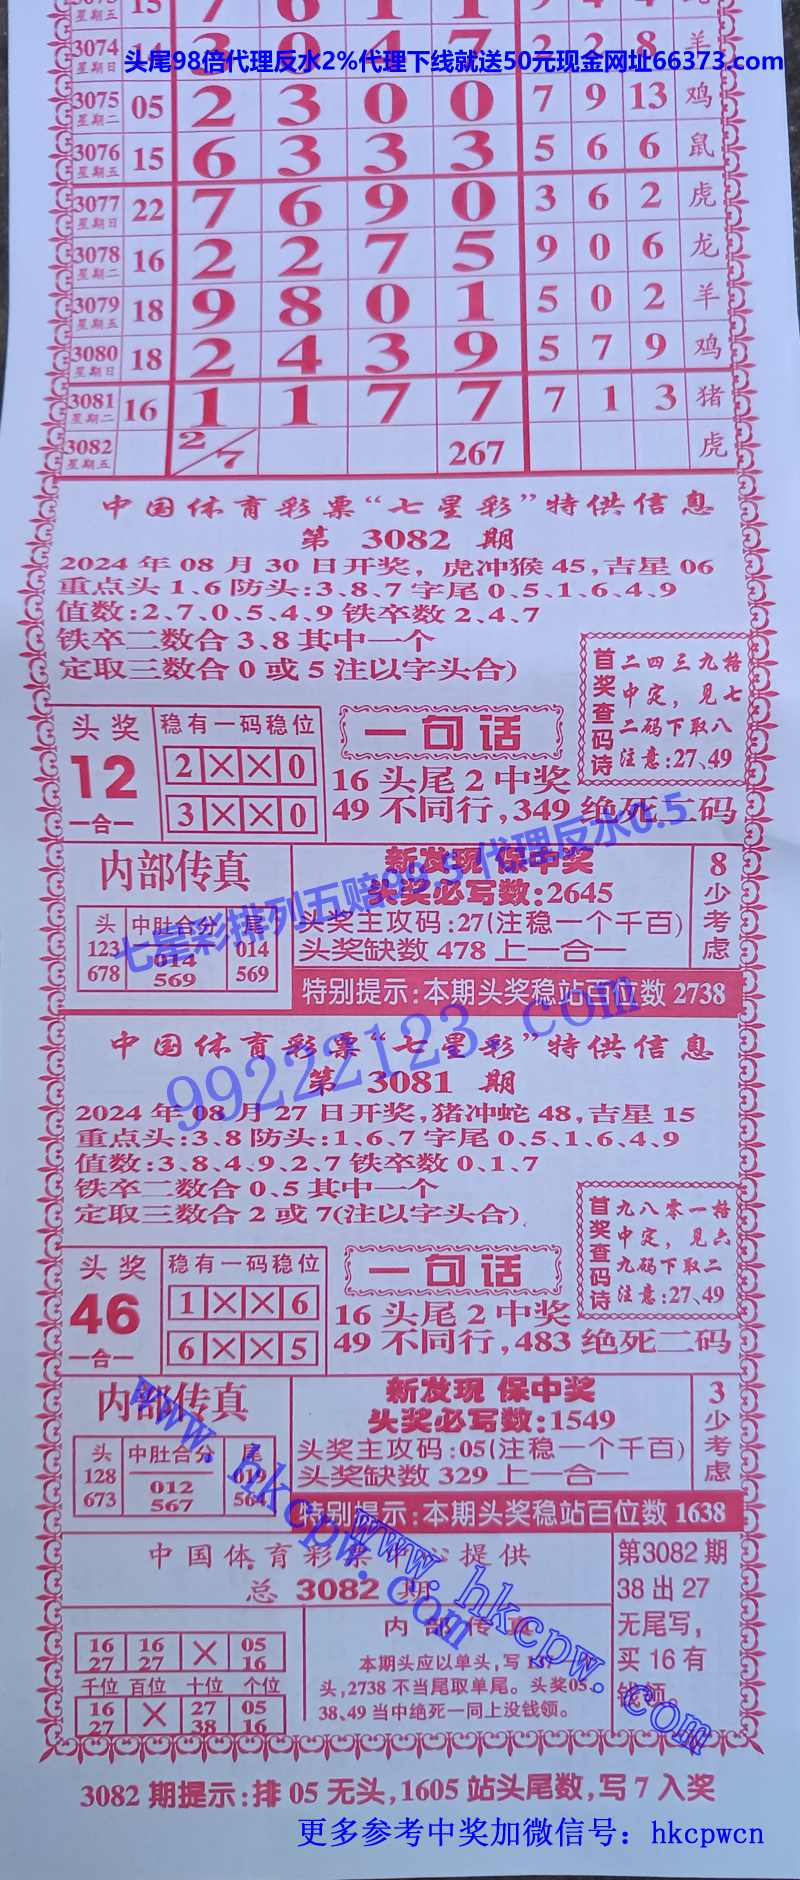 3073 星期五 15 7 6 1 1 9 4 4
3074 星期日 14 3 9 4 7 2 2 8 羊
头尾98倍代理反水2%代理下线就送50元现金网址66373.com
3075 星期二 05 2 3 0 0 7 9 13 鸡
3076 星期五 15 6 3 3 3 5 6 6 鼠
3077 星期日 22 7 6 9 0 3 6 2 虎
3078 星期二 16 2 2 7 5 9 0 6 龙
3079 星期五 18 9 8 0 1 5 0 2 羊
3080 星期日 18 2 4 3 9 5 7 9 鸡
3081 星期二 16 1 1 7 7 7 1 3 猪
3082 星期五 2/7 267 虎
中国体育彩票“七星彩”特供信息
第 3082 期
2024 年 08 月 30 日开奖, 虎冲猴 45,吉星 06
重点头 1、6 防头:3、8、7 字尾 0、5、1、6、4、9
值数:2、7、0、5、4、9 铁卒数 2、4、7
铁卒二数合 3、8 其中一个
定取三数合 0 或 5 注以字头合)
首奖查码诗
二四三九格
中定，见七
二码下取八
注意:27、49
头奖
12
一合一
稳有一码稳位
2 × × 0
3 × × 0
一句话
16 头尾 2 中奖
49 不同行,349 绝死二码
内部传真
头 中肚合分 尾
123 014 014
678 569 569
新发现 保中奖
头奖必写数:2645
头奖主攻码:27(注稳一个千百)
头奖缺数 478 上一合一
8
少考虑
特别提示:本期头奖稳站百位数 2738
七星彩排列五赔99.5 代理反水0.5
99222123.com
中国体育彩票“七星彩”特供信息
第 3081 期
2024 年 08 月 27 日开奖,猪冲蛇 48,吉星 15
重点头:3、8 防头:1、6、7 字尾 0、5、1、6、4、9
值数:3、8、4、9、2、7 铁卒数 0、1、7
铁卒二数合 0、5 其中一个
定取三数合 2 或 7(注以字头合)
首奖查码诗
九八零一格
中定，见六
九码下取二
注意:27、49
头奖
46
一合一
稳有一码稳位
1 × × 6
6 × × 5
一句话
16 头尾 2 中奖
49 不同行,483 绝死二码
内部传真
头 中肚合分 尾
128 012 019
673 567 564
新发现 保中奖
头奖必写数:1549
头奖主攻码:05(注稳一个千百)
头奖缺数 329 上一合一
3
少考虑
特别提示:本期头奖稳站百位数 1638
www.hkcpw.com
www.hkcpw.com
中国体育彩票中心提供
总 3082 期
16 27 16 27 × 05 16
千位 百位 十位 个位
16 27 × 27 38 05 16
内部传真
本期头应以单头,写
一
头,2738 不当尾取单尾。头奖05、
38、49 当中绝死一同上没钱领。
第3082 期
38 出 27
无尾写，
买 16 有
钱领。
3082 期提示:排 05 无头,1605 站头尾数,写 7 入奖
更多参考中奖加微信号：hkcpwcn